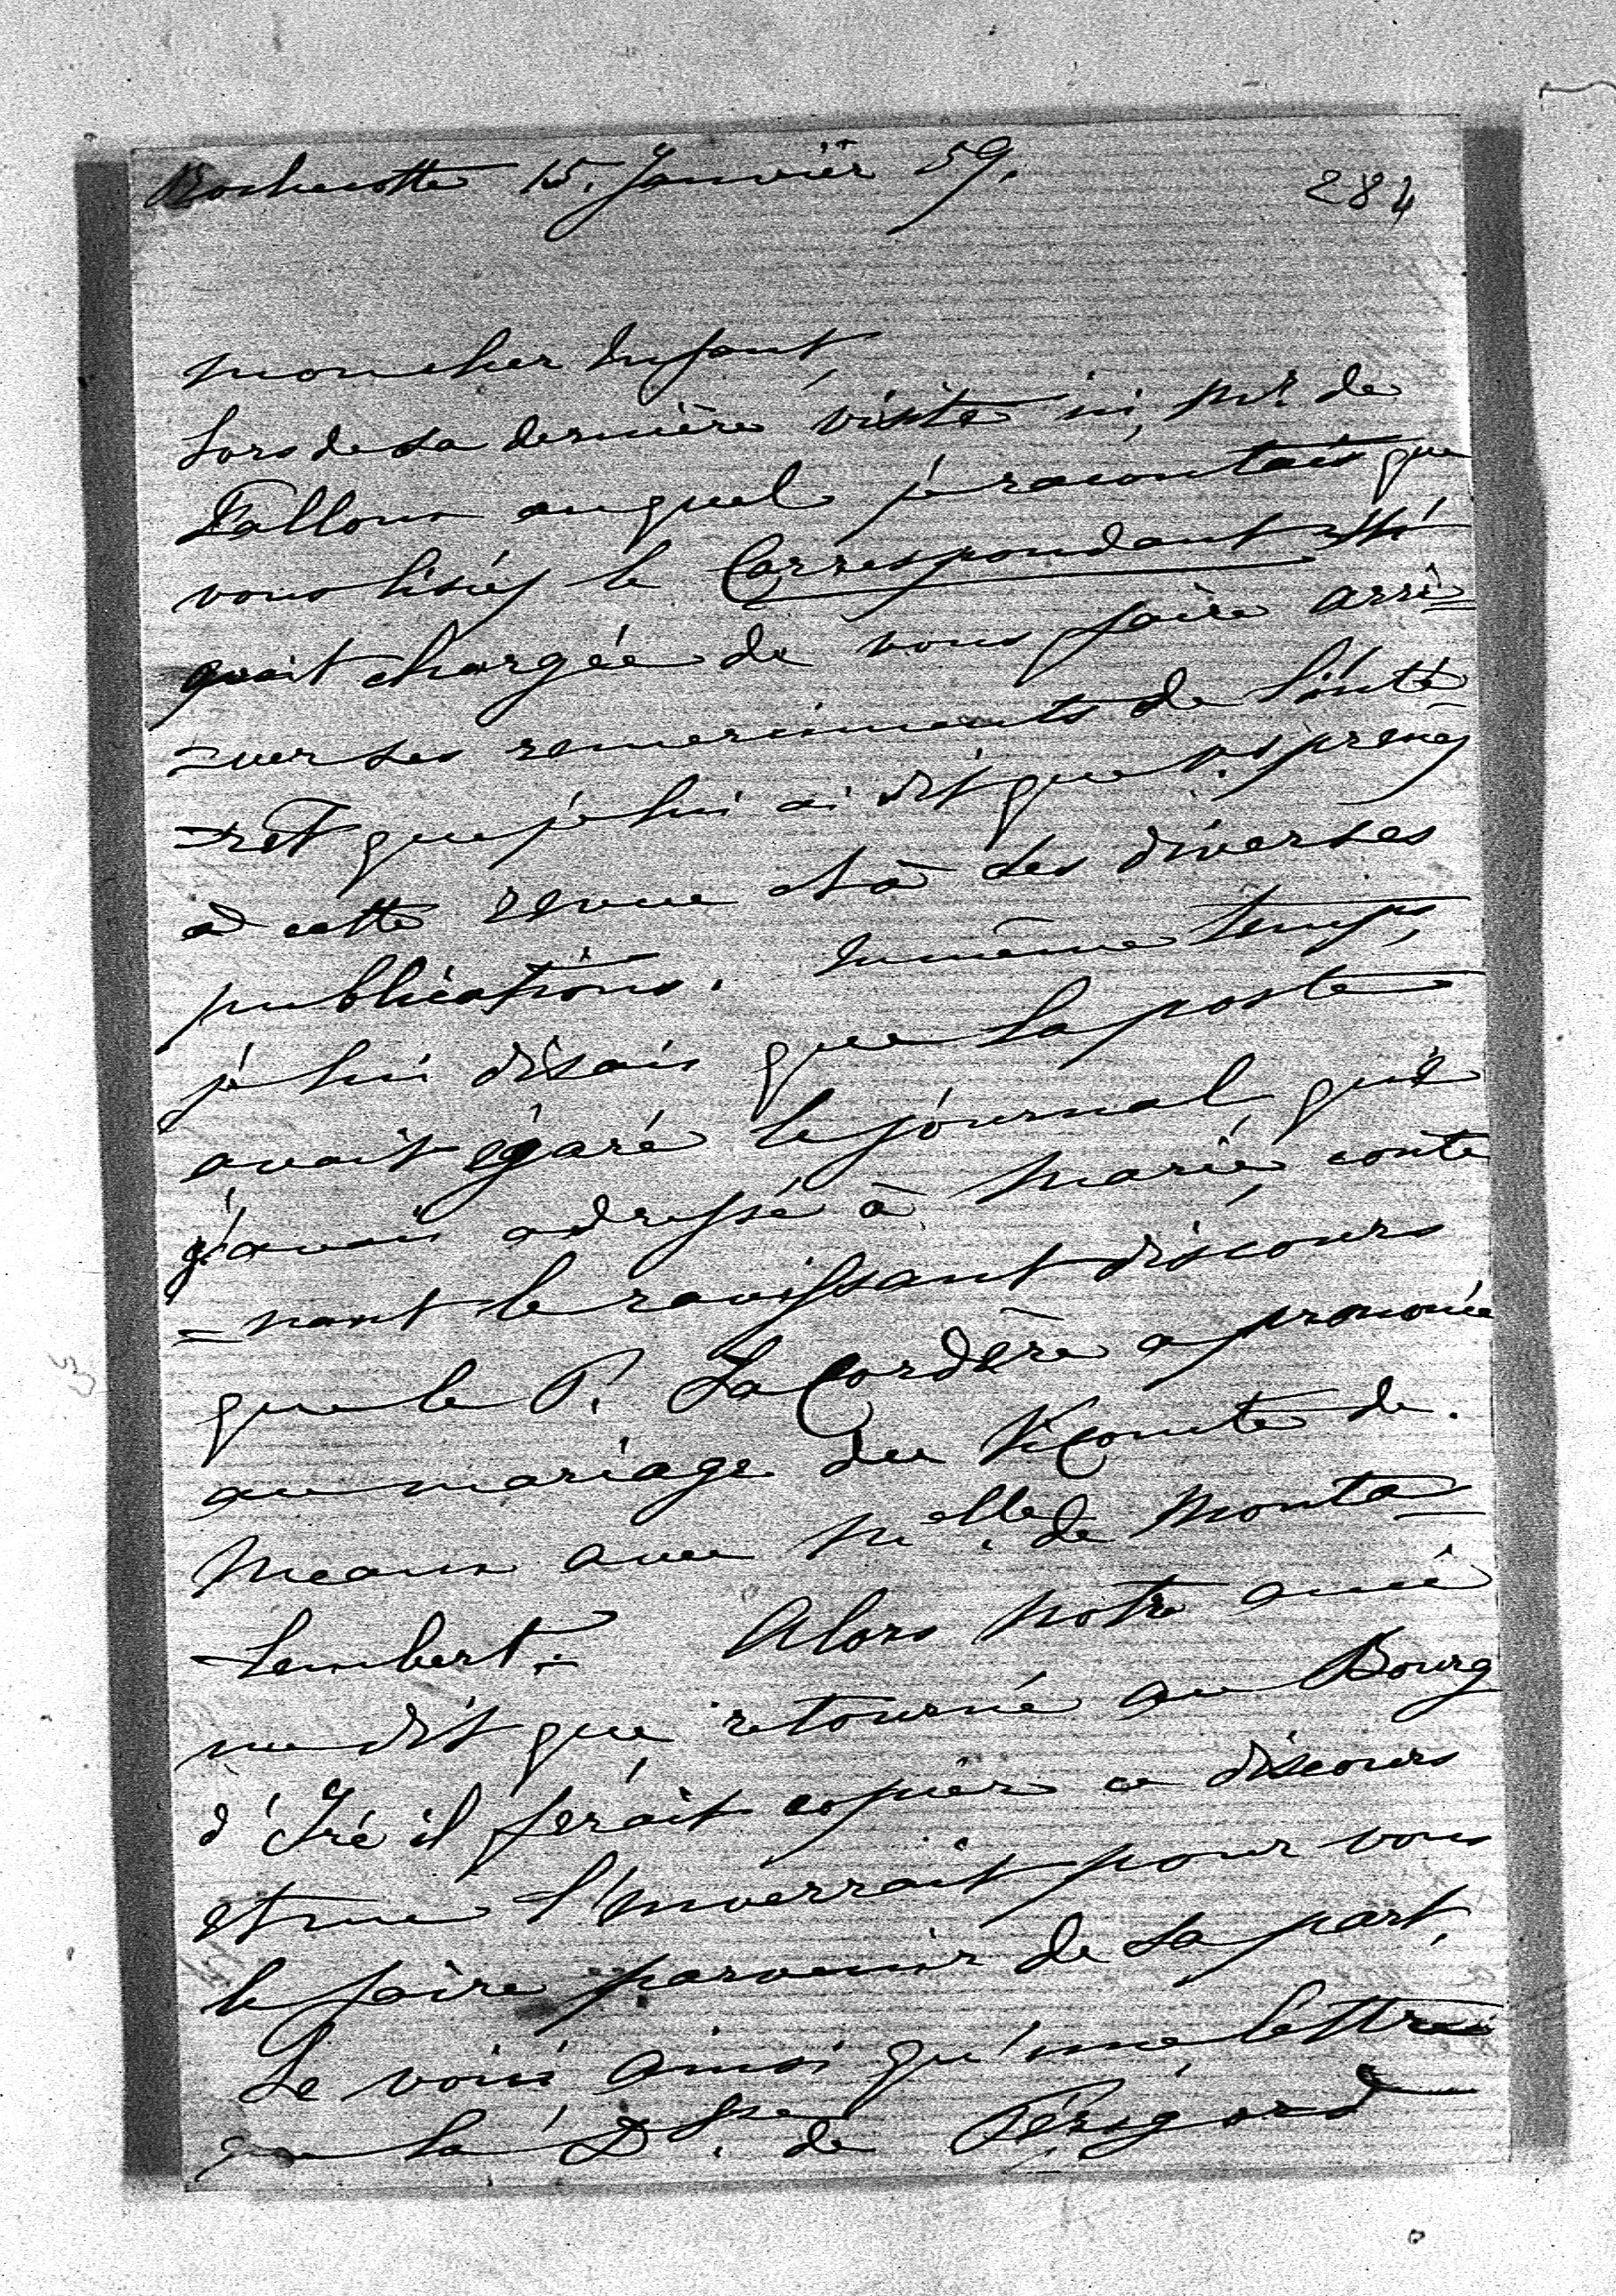 Rochecotte 15. Janvier 59.
284
mon cher Enfant,
Lors de sa dernière visite ici, Mr. de
Falloux auquel je racontais que
vous lisiez le Correspondant m'
avait chargée de vous faire arri=
=ver ses remerciments de l'inté=
=rêt que je lui ai dit que vs prenez
à cette revue et à ses diverses
publications. En même temps,
je lui disais que la poste
avait égaré le journal que
j'avais adressé à Marie, conte
=nant le ravissant discours
que le P. LaCordère a prononcé
au mariage du Vicomte de
Meaux avec Melle. de Monta=
=lembert. Alors notre ami
me dit que, retourné au Bourg
d'Iré il ferait copier ce discours
et me l'enverrait pour vous
le faire parvenir de sa part.
Le voici ainsi qu'une lettre
que la Dsse. de Périgord